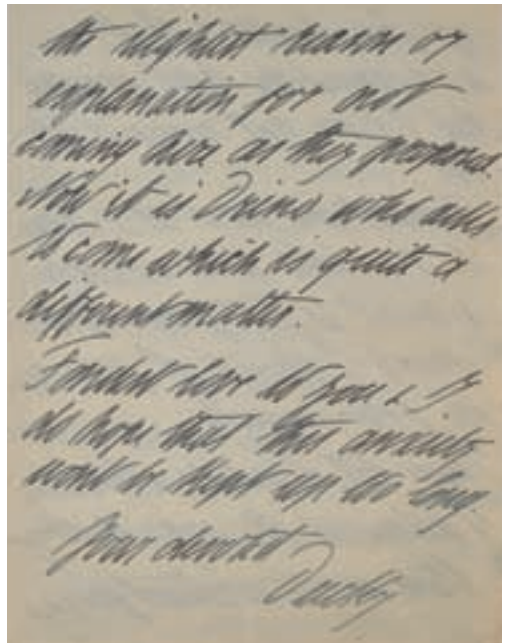 the slightest reason or
explanation for not
coming here as they proposed.
Now it is Drino who asks
to come which is quite a
different matter.
Fondest love to you & I
do hope that this anxiety
wont be kept up too long.
Your devoted